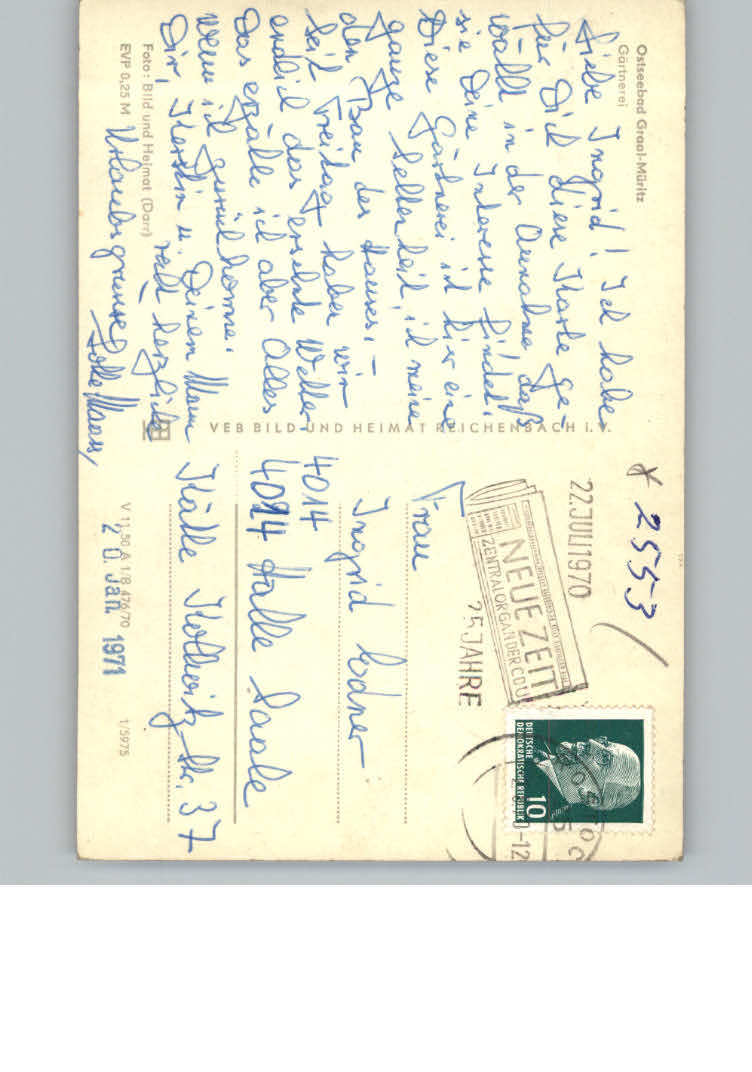 Ostseebad Graal-Müritz
Gärtnerei
Liebe Ingrid! Ich habe
für Dich diese Karte ge-
wählt in der Annahme, daß
sie Deine Interesse findet.
Diese Gärtnerei ist hier eine
ganze Seltenheit ich meine
den Bau des Hauses. –
Seit Freitag haben wir
endlich das ersehnte Wetter.
Das erzähle ich aber Alles
wenn ich zurückkomme.
Dir, Kerstin u. Deinem Mann
recht herzliche
Urlaubsgrüsse
Foto: Bild und Heimat (Darr)
EVP 0,25 M
VEB BILD UND HEIMAT REICHENBACH i. V.
* 2553
22. JULI 1970
NEUE ZEIT
ZENTRALORGAN DER CDU
25 JAHRE
DEUTSCHE
DEMOKRATISCHE REPUBLIK
10
Frau
Ingrid
4014
4014 Halle Saale
Käthe Kollwitz Str. 37
V 11,50 A 1/B 476/70
1/5975
20. Jan. 1971